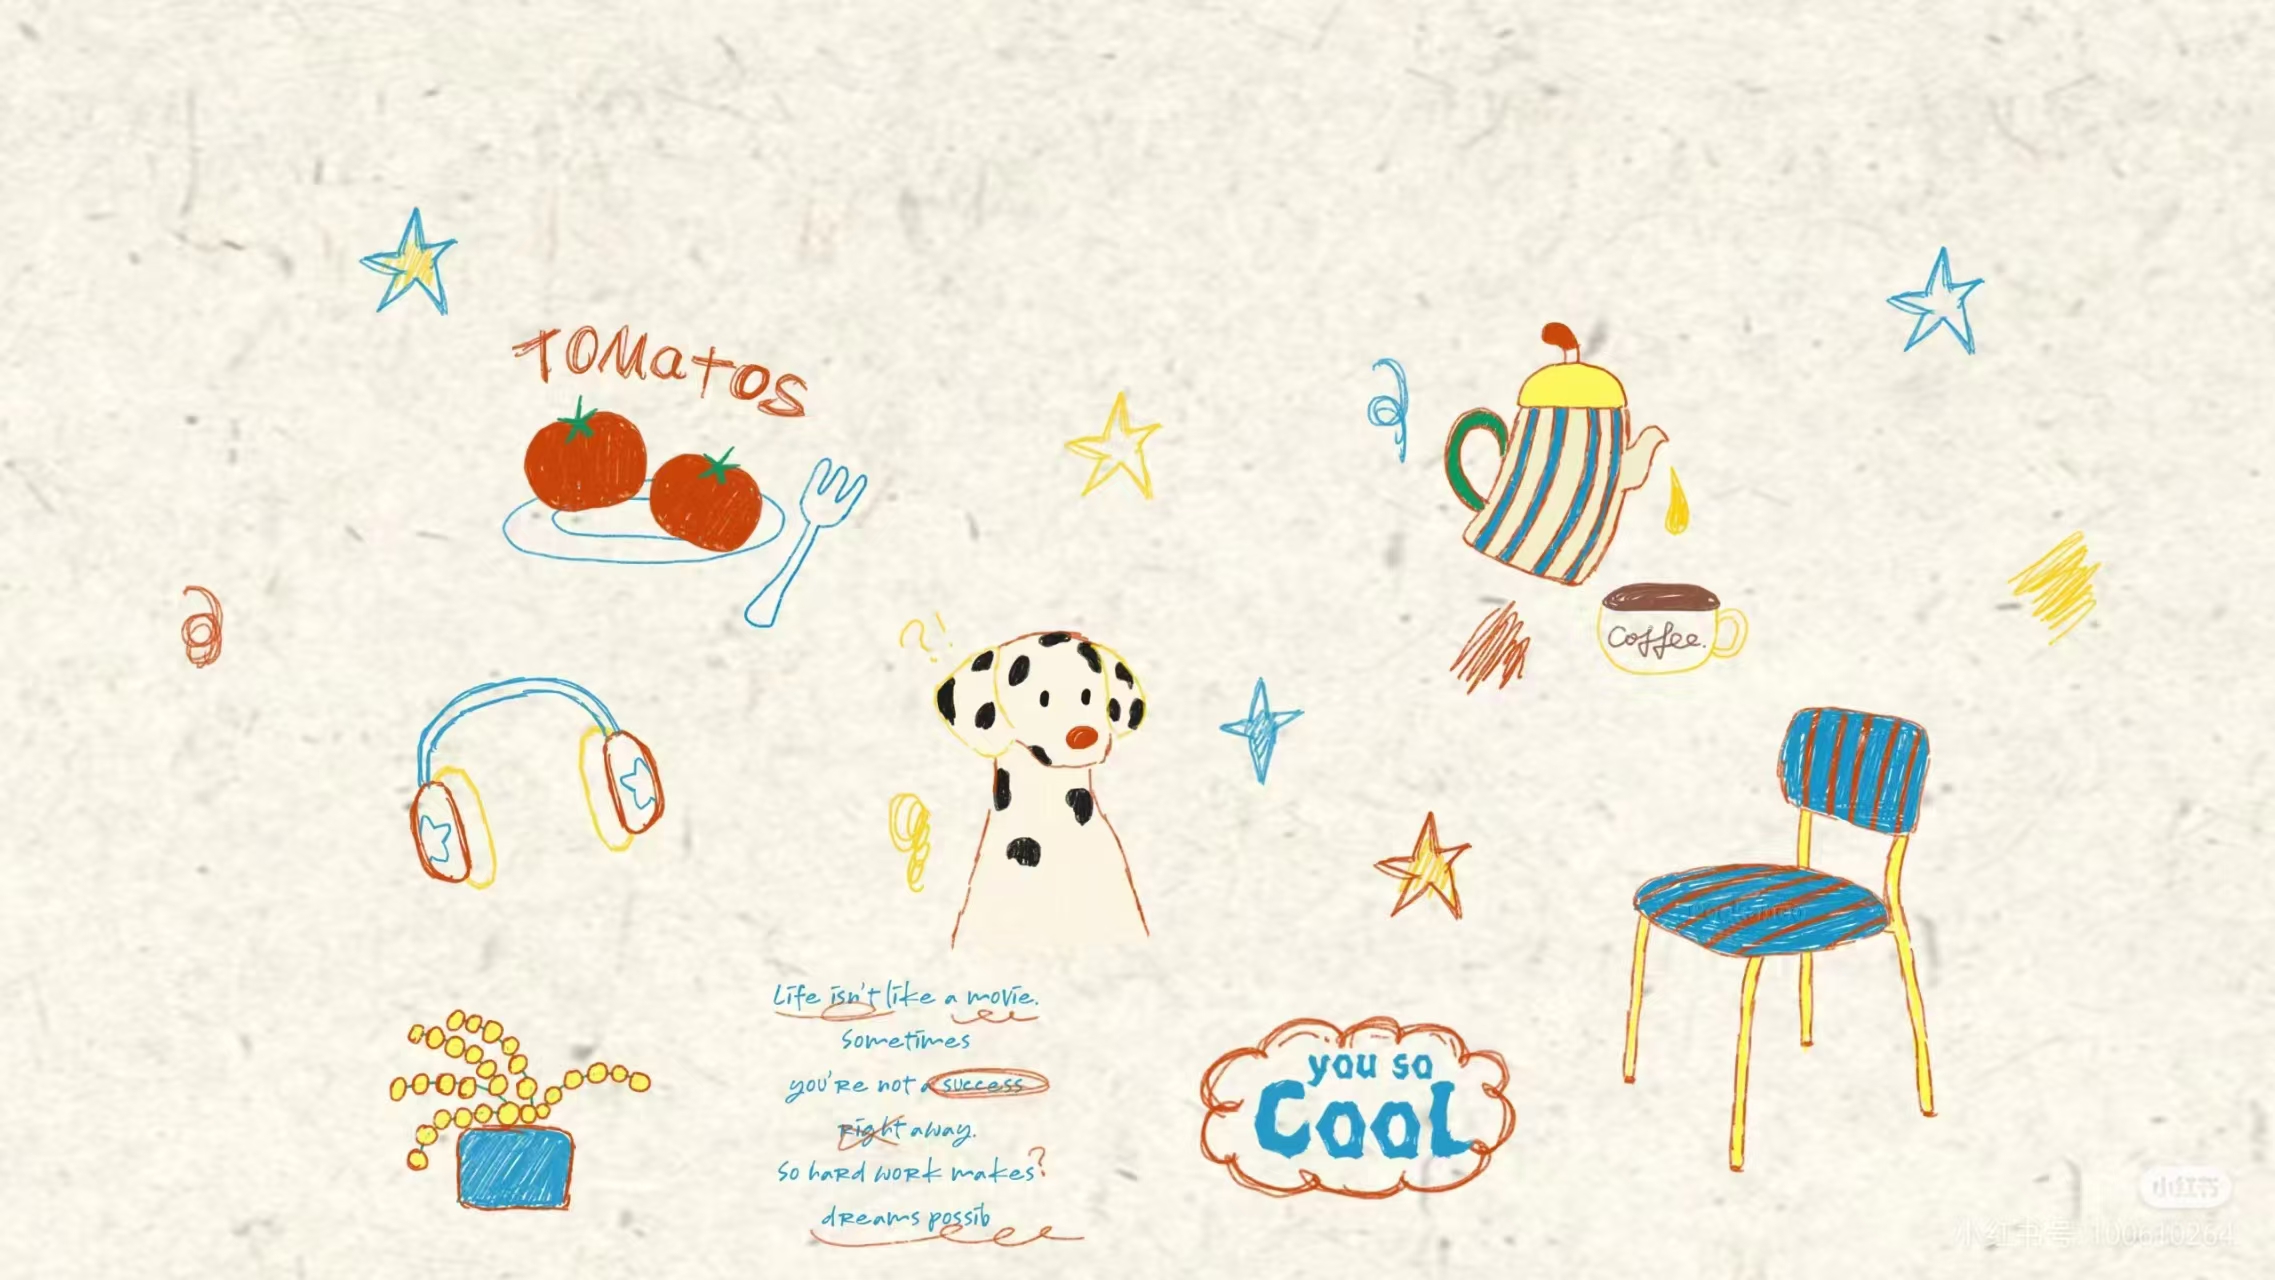 TOMATOS
?!
Coffee.
Life isn't like a movie.
Sometimes
you're not a success
right away.
So hard work makes?
dreams possib
you so
Cool
小红书
小红书号: 100610264